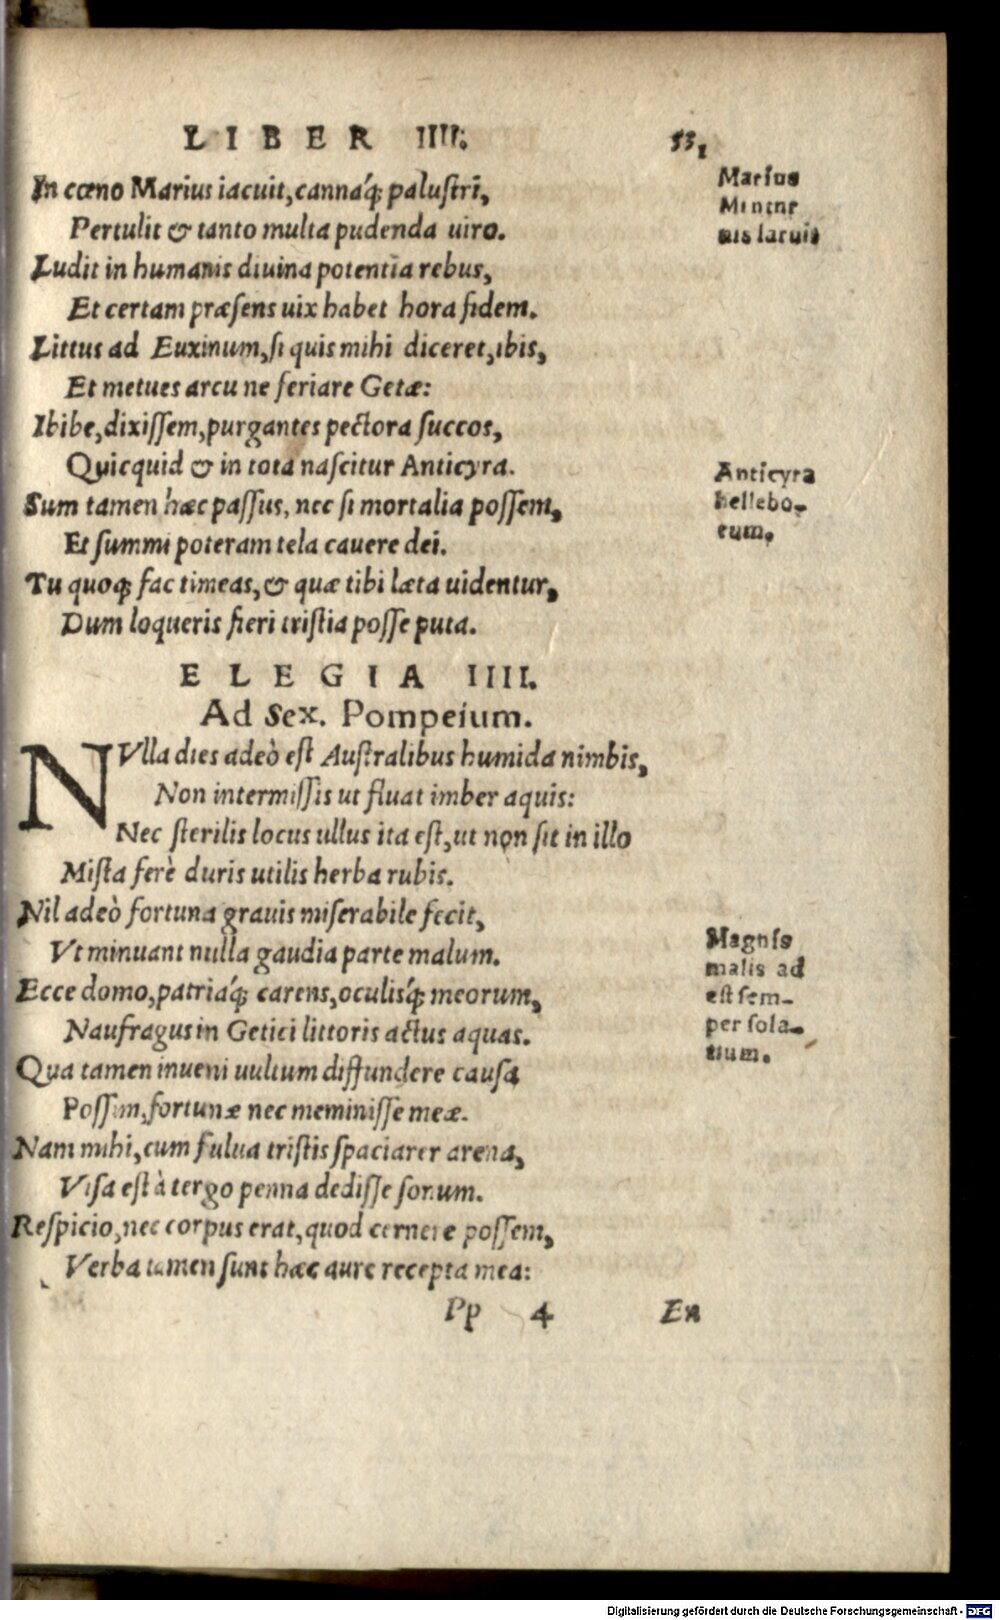 LIBER IIII.
In cœno Marius iacuit, cannaq́; palustri,
Pertulit & tanto multa pudenda uiro.
Ludit in humanis diuina potentia rebus,
Et certam præsens uix habet hora fidem.
Littus ad Euxinum, si quis mihi diceret, ibis,
Et metues arcu ne feriare Getæ:
I bibe, dixissem, purgantes pectora succos,
Quicquid & in tota nascitur Anticyra.
Sum tamen hæc passus, nec si mortalia possem,
Et summi poteram tela cauere dei.
Tu quoq; fac timeas, & quæ tibi læta uidentur,
Dum loqueris fieri tristia posse puta.
Marius
Mintur
nis iacuit
Anticyra
hellebo-
rum.
ELEGIA IIII.
Ad Sex. Pompeium.
NVlla dies adeò est Australibus humida nimbis,
Non intermissis ut fluat imber aquis:
Nec sterilis locus ullus ita est, ut non sit in illo
Mista ferè duris utilis herba rubis.
Nil adeò fortuna grauis miserabile fecit,
Vt minuant nulla gaudia parte malum.
Ecce domo, patriaq́; carens, oculisq́; meorum,
Naufragus in Getici littoris actus aquas.
Qua tamen inueni uultum diffundere causa
Possim, fortunæ nec meminisse meæ.
Nam mihi, cum fulua tristis spaciarer arena,
Visa est à tergo penna dedisse sonum.
Respicio, nec corpus erat, quod cernere possem,
Verba tamen sunt hæc aure recepta mea:
Magnis
malis ad
est sem-
per sola-
tium.
Pp 4 En
Digitalisierung gefördert durch die Deutsche Forschungsgemeinschaft - DFG